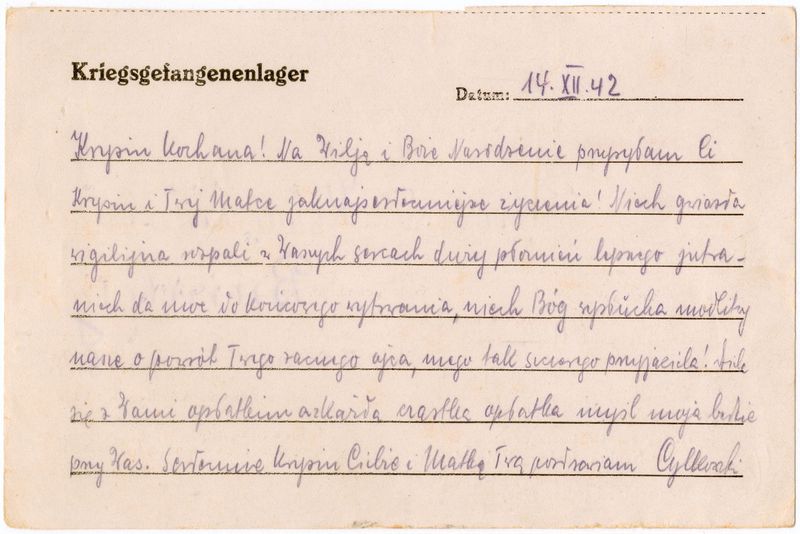 Kriegsgefangenenlager
Datum: 14. XII. 42
Krysiu Kochana! Na Wilję i Boże Narodzenie przesyłam Ci
Krysiu i Twej Matce jaknajserdeczniejsze życzenia! Niech gwiazda
wigilijna rozpali w Waszych sercach duży płomień lepszego jutra -
niech da moc do końcowego wytrwania, niech Bóg wysłucha modlitwy
nasze o powrót Twego zacnego ojca, mego tak szczerego przyjaciela! Dzielę
się z Wami opłatkiem a z każdą cząstką opłatka myśl moja będzie
przy Was. Serdecznie Krysiu Ciebie i Matkę Twą pozdrawiam